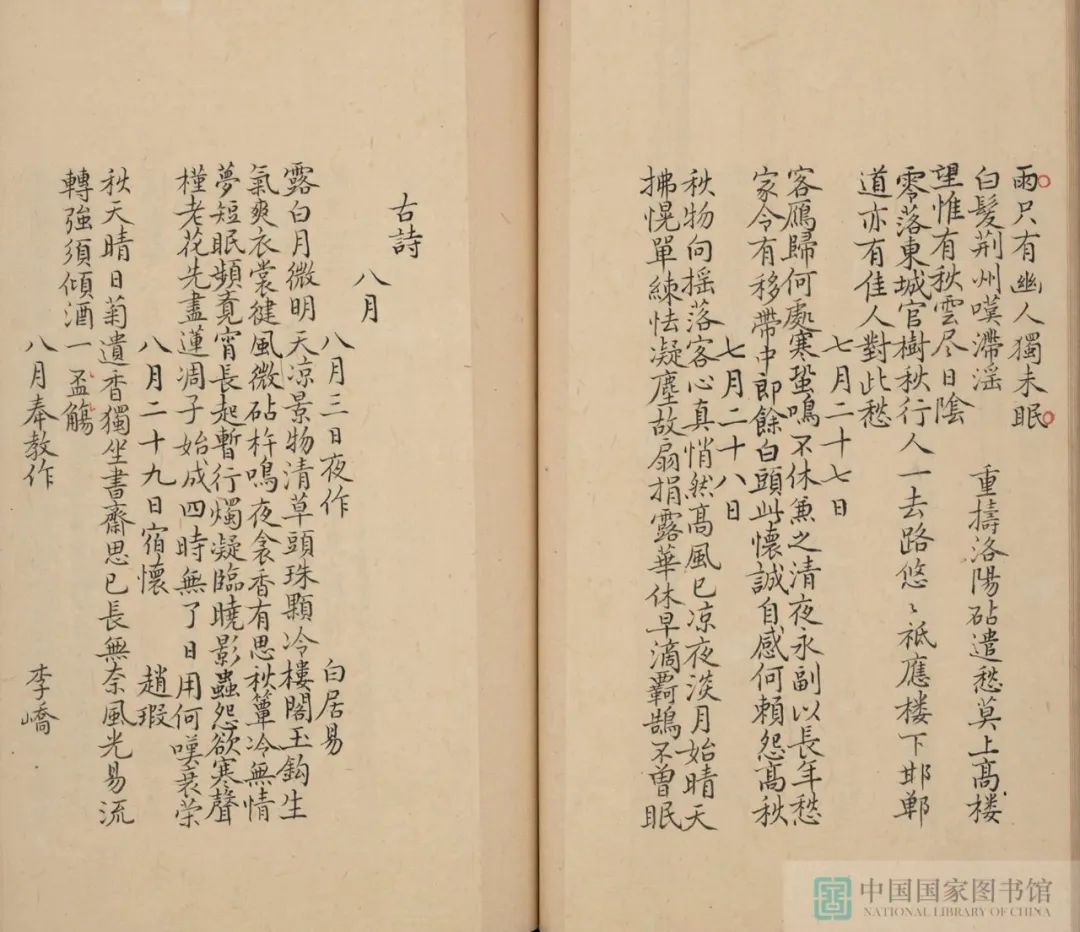 雨只有幽人獨未眠
白髮荆州嘆滯滛　重擣洛陽砧遣愁莫上高楼
望惟有秋雲尽日陰
零落東城官樹秋行人一去路悠〻祗應楼下邯鄲
道亦有佳人對此愁
七月二十七日
客鴈歸何處寒蛩鳴不休兼之清夜永副以長年愁
家令有移帶中郎餘白頭此懷誠自感何頼怨高秋
七月二十八日
秋物向揺落客心真悄然高風已凉夜淡月始晴天
拂幌單練怯凝塵故扇捐露華休早滴覉鵠不曽眠
古詩
八月
八月三日夜作　白居易
露白月微明天凉景物清草頭珠顆冷樓閣玉鈎生
氣爽衣裳徤風微砧杵鳴夜衾香有思秋簟冷無情
夢短眠頻覔宵長起暫行燭凝臨曉影蟲怨欲寒聲
槿老花先盡蓮凋子始成四時無了日用何嘆衰荣
八月二十九日宿懷　趙嘏
秋天晴日菊遺香獨坐書齋思已長無奈風光易流
轉強須傾酒一盃觴
八月奉教作　李嶠
中国国家图书馆
NATIONAL LIBRARY OF CHINA